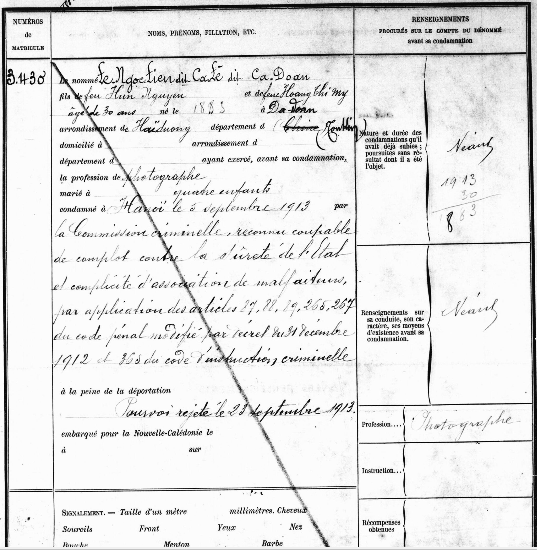 NUMÉROS
de
MATRICULE
NOMS, PRÉNOMS, FILIATION, ETC.
RENSEIGNEMENTS
PROCURÉS SUR LE COMPTE DU DÉNOMMÉ
avant sa condamnation
3.430
Le nommé Le Ngoc Lien dit Ca Lê dit Ca. Doan
fils de feu Huu Nguyen et de feue Hoang Thi My
âgé de 30 ans né le 1883 à Da Doan
arrondissement de Hai Duong département d (Tonkin)
domicilié à arrondissement d
département d ayant exercé, avant sa condamnation,
la profession de photographe
marié à quatre enfants
condamné à Hanoï le 5 septembre 1913 par
la Commission criminelle, reconnu coupable
de complot contre la sûreté de l'Etat
et complicité d'association de malfaiteurs,
par application des articles 87, 88, 89, 265, 267
du code pénal modifié par décret du 31 décembre
1912 et 365 du code d'instruction criminelle
à la peine de la déportation
Pourvoi rejeté le 23 septembre 1913.
embarqué pour la Nouvelle-Calédonie le
à sur
SIGNALEMENT. — Taille d'un mètre millimètres. Cheveux
Sourcils Front Yeux Nez
Bouche Menton Barbe
Nature et durée des
condamnations qu'il
avait déjà subies ;
poursuites sans ré-
sultat dont il a été
l'objet.
Néant
1913
30
1883
Renseignements sur
sa conduite, son ca-
ractère, ses moyens
d'existence avant sa
condamnation.
Néant
Profession.... Photographe
Instruction....
Récompenses
obtenues